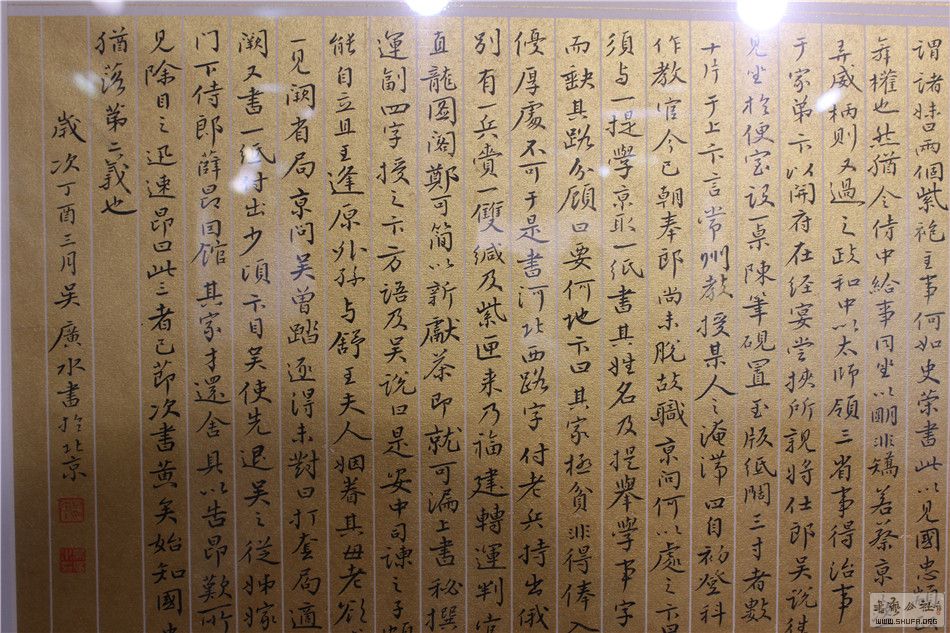 谓诸妗曰两個紫袍主事何如史荣書此以见國忠頤
弄權也然猶令侍中給事同坐以明非矯若蔡京
弄威柄則又過之政和中以太師領三省事得治事
于家弟卞以開府在经宴嘗挾所親將仕郎吴说往
见坐於便室设一桌陳筆硯置玉版纸阔三寸者數
十片于上卞言常州教授某人之淹滞曰自初登科
作教官今已朝奉郎尚未脱故職京问何以處之卞曰
須与一提學京取一纸書其姓名及提舉學事字
而缺其路分顧曰要何地卞曰其家極貧非得俸入
優厚處不可于是書河北西路字付老兵持出俄
别有一兵賫一雙緘及紫匣来乃福建轉運判官
直龍圖阁鄭可简以新獻茶即就可漏上書秘撰
運副四字授之卞方語及吴说曰是安中司諫之子頗
能自立且王逢原外孫与舒王夫人姻眷其母老欲
一见阙省局京问吴曾踏逐得未對曰打套局適
阙又書一纸付出少頃卞目吴使先退吴之從姊嫁
门下侍郎薛昂因馆其家才還舍具以告昂歎所
见除目之迅速昂曰此三者已節次書黄矣始知國忠
猶落第二義也
歲次丁酉三月吴廣水書於北京
書法公社
WWW.SHUFA.ORG